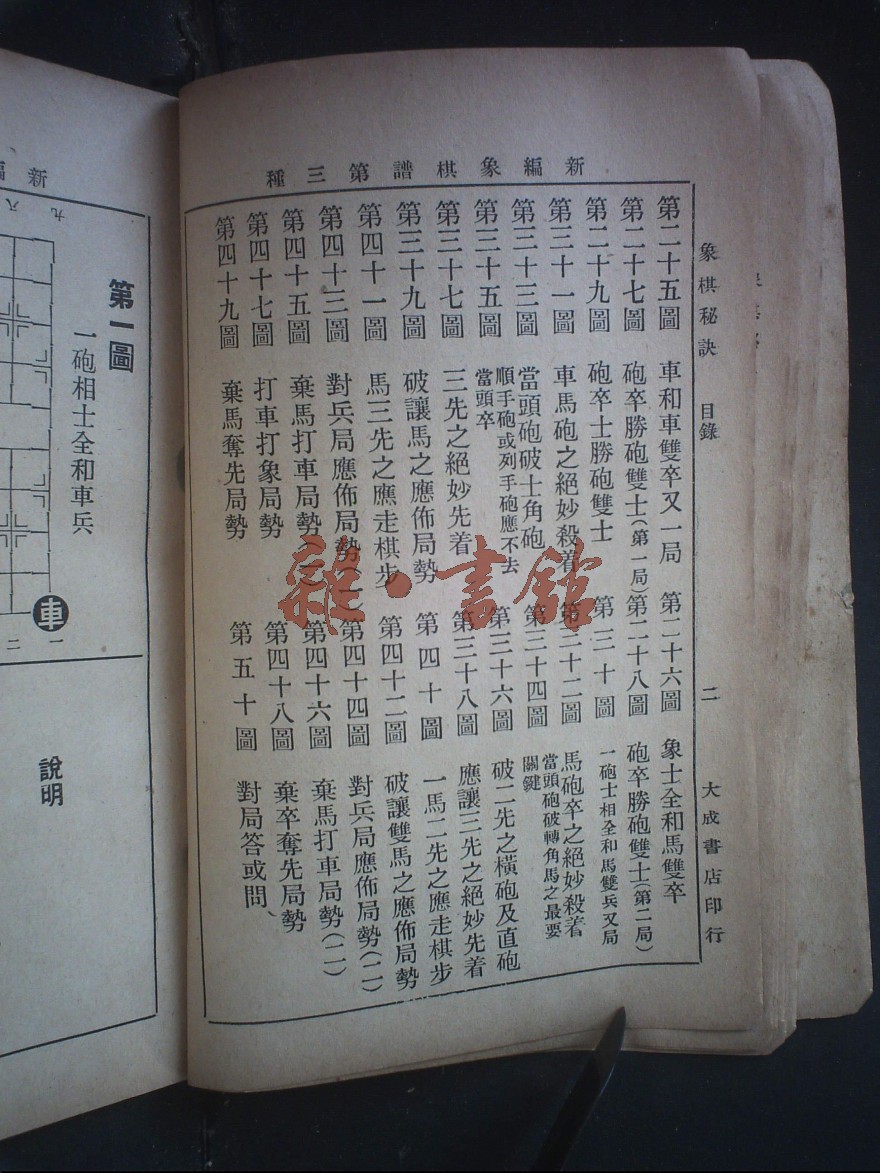 新編象棋譜第三種
象棋秘訣 目錄 二 大成書店印行
第二十五圖 車和車雙卒又一局 第二十六圖 象士全和馬雙卒
第二十七圖 砲卒勝砲雙士(第一局) 第二十八圖 砲卒勝砲雙士(第二局)
第二十九圖 砲卒士勝砲雙士 第三十圖 一砲士相全和馬雙兵又局
第三十一圖 車馬砲之絕妙殺着 第三十二圖 馬砲卒之絕妙殺着
第三十三圖 當頭砲破士角砲 第三十四圖 當頭砲破轉角馬之最要關鍵
第三十五圖 順手砲或列手砲應不去當頭卒 第三十六圖 破二先之橫砲及直砲
第三十七圖 三先之絕妙先着 第三十八圖 應讓三先之絕妙先着
第三十九圖 破讓馬之應佈局勢 第四十圖 一馬二先之應走棋步
第四十一圖 馬三先之應走棋步 第四十二圖 破讓雙馬之應佈局勢
第四十三圖 對兵局應佈局勢(一) 第四十四圖 對兵局應佈局勢(二)
第四十五圖 棄馬打車局勢(一) 第四十六圖 棄馬打車局勢(二)
第四十七圖 打車打象局勢 第四十八圖 棄卒奪先局勢
第四十九圖 棄馬奪先局勢 第五十圖 對局答或問、
雜·書館
新編
九八
第一圖
一砲相士全和車兵
車
二一
說明